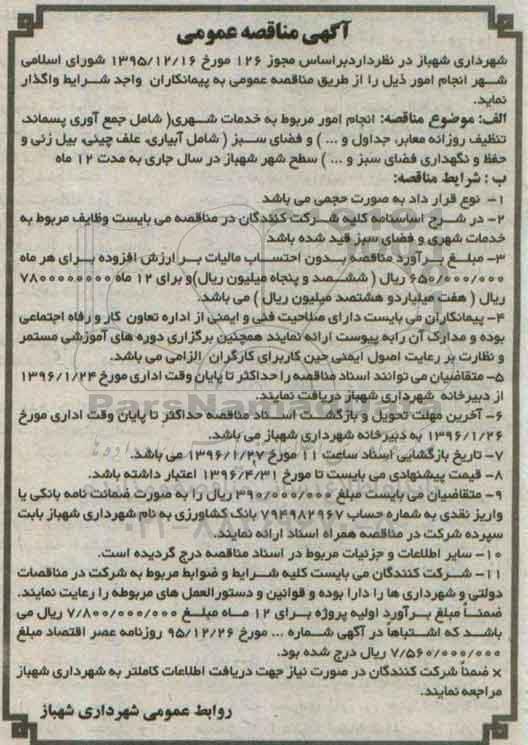 آگهی مناقصه عمومی
شهرداری شهباز در نظرداردبراساس مجوز ۱۲۶ مورخ ۱۳۹۵/۱۲/۱۶ شورای اسلامی
شهر انجام امور ذیل را از طریق مناقصه عمومی به پیمانکاران واجد شرایط واگذار
نماید.
الف: موضوع مناقصه: انجام امور مربوط به خدمات شهری( شامل جمع آوری پسماند،
تنظیف روزانه معابر، جداول و ... ) و فضای سبز ( شامل آبیاری، علف چینی، بیل زنی و
حفظ و نگهداری فضای سبز و ... ) سطح شهر شهباز در سال جاری به مدت ۱۲ ماه
ب : شرایط مناقصه:
۱- نوع قرار داد به صورت حجمی می باشد
۲- در شرح اساسنامه کلیه شرکت کنندگان در مناقصه می بایست وظایف مربوط به
خدمات شهری و فضای سبز قید شده باشد
۳- مبلغ برآورد مناقصه بدون احتساب مالیات بر ارزش افزوده برای هر ماه
۶۵۰/۰۰۰/۰۰۰ ریال ( ششصد و پنجاه میلیون ریال)و برای ۱۲ ماه ۷۸۰۰۰۰۰۰۰۰
ریال ( هفت میلیاردو هشتصد میلیون ریال ) می باشد.
۴- پیمانکاران می بایست دارای صلاحیت فنی و ایمنی از اداره تعاون کار و رفاه اجتماعی
بوده و مدارک آن رابه پیوست ارائه نمایند همچنین برگزاری دوره های آموزشی مستمر
و نظارت بر رعایت اصول ایمنی حین کاربرای کارگران الزامی می باشد.
۵- متقاضیان می توانند اسناد مناقصه را حداکثر تا پایان وقت اداری مورخ ۱۳۹۶/۱/۲۴
از دبیرخانه شهرداری شهباز دریافت نمایند.
۶- آخرین مهلت تحویل و بازگشت اسناد مناقصه حداکثر تا پایان وقت اداری مورخ
۱۳۹۶/۱/۲۶ به دبیرخانه شهرداری شهباز می باشد.
۷- تاریخ بازگشایی اسناد ساعت ۱۱ مورخ ۱۳۹۶/۱/۲۷ می باشد.
۸- قیمت پیشنهادی می بایست تا مورخ ۱۳۹۶/۴/۳۱ اعتبار داشته باشد.
۹- متقاضیان می بایست مبلغ ۳۹۰/۰۰۰/۰۰۰ ریال را به صورت ضمانت نامه بانکی یا
واریز نقدی به شماره حساب ۷۹۴۹۸۲۹۶۷ بانک کشاورزی به نام شهرداری شهباز بابت
سپرده شرکت در مناقصه همراه اسناد ارائه نمایند.
۱۰- سایر اطلاعات و جزئیات مربوط در اسناد مناقصه درج گردیده است.
۱۱- شرکت کنندگان می بایست کلیه شرایط و ضوابط مربوط به شرکت در مناقصات
دولتی و شهرداری ها را دارا بوده و قوانین و دستورالعمل های مربوطه را رعایت نمایند.
ضمناً مبلغ برآورد اولیه پروژه برای ۱۲ ماه مبلغ ۷/۸۰۰/۰۰۰/۰۰۰ ریال می
باشد که اشتباهاً در آگهی شماره ... مورخ ۹۵/۱۲/۲۶ روزنامه عصر اقتصاد مبلغ
۷/۵۶۰/۰۰۰/۰۰۰ ریال درج شده بود.
× ضمنا شرکت کنندگان در صورت نیاز جهت دریافت اطلاعات کاملتر به شهرداری شهباز
مراجعه نمایند.
روابط عمومی شهرداری شهباز